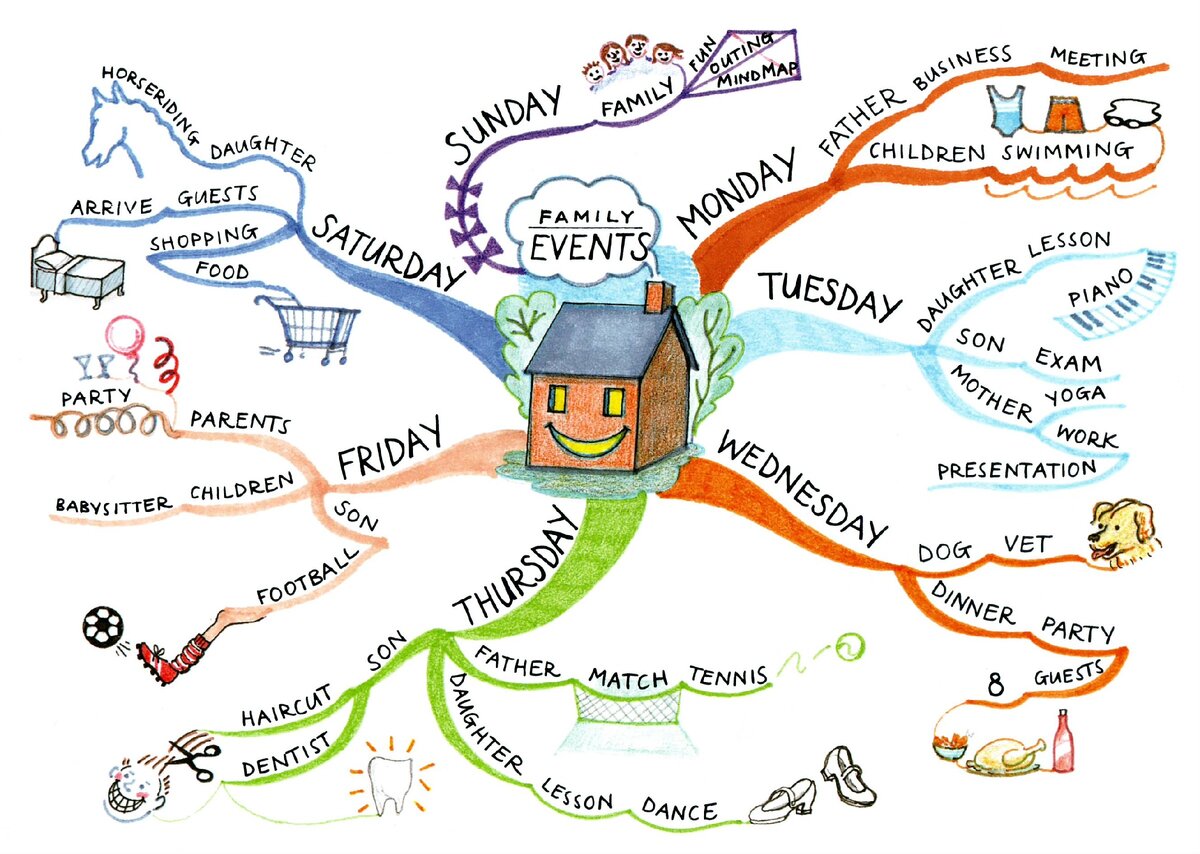 FAMILY
EVENTS
MONDAY
FATHER BUSINESS MEETING
CHILDREN SWIMMING
TUESDAY
DAUGHTER LESSON
PIANO
SON EXAM
MOTHER YOGA
WORK
PRESENTATION
WEDNESDAY
DOG VET
DINNER PARTY
8 GUESTS
THURSDAY
FATHER MATCH TENNIS
DAUGHTER LESSON DANCE
SON
HAIRCUT
DENTIST
FRIDAY
SON
FOOTBALL
BABYSITTER CHILDREN
PARENTS
PARTY
SATURDAY
SHOPPING
FOOD
ARRIVE GUESTS
HORSERIDING DAUGHTER
SUNDAY
FAMILY
FUN
OUTING
MINDMAP